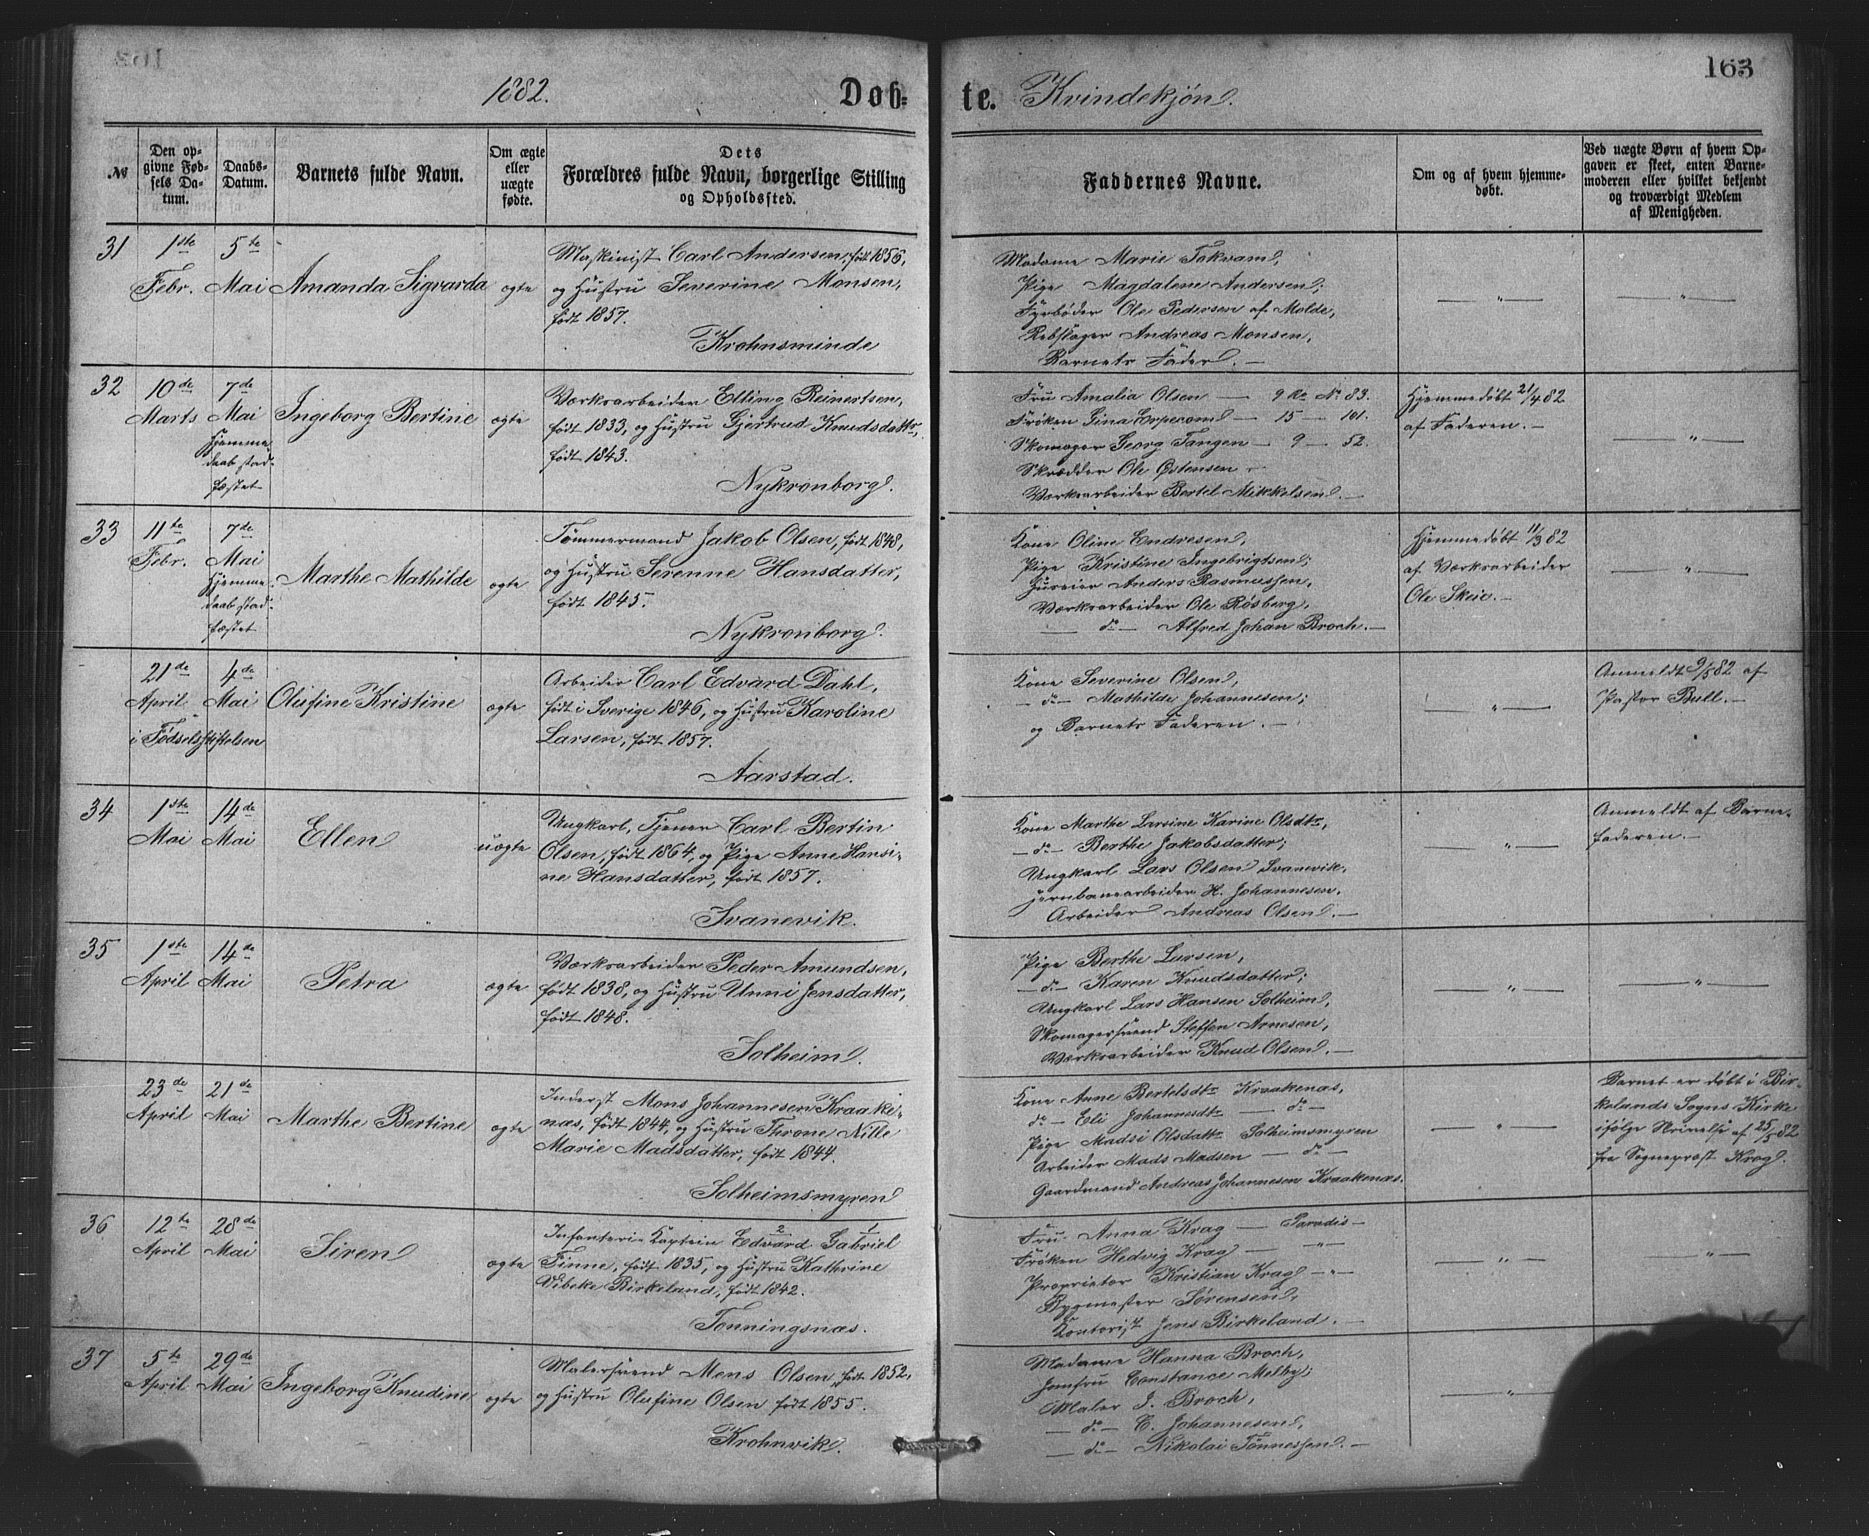 163
1882.
Døb= te. Kvindekjøn.
№
Den opgivne Fødsels Datum.
Daabs-Datum.
Barnets fulde Navn.
Om ægte eller uægte fødte.
Dets Forældres fulde Navn, borgerlige Stilling og Opholdssted.
Faddernes Navne.
Om og af hvem hjemmedøbt.
Ved uægte Børn af hvem Opgaven er skeet, enten Barnemoderen eller hvilket bekjendt og troværdigt Medlem af Menigheden.
31
1ste Febr.
5te Mai
Amanda Sigvarda
ægte
Maskinist Carl Andersen, født 1856,
og Hustru Severine Monsen,
født 1857.
Krohnsminde
Madame Marie Tokvam,
Pige Magdalene Andersen;
Fyrbøder Ole Pedersen af Molde,
Rebslager Andreas Monsen,
Barnets Fader. —
— " —
— " —
32
10de Marts
7de Mai
Hjemme-
daab stad-
fæstet
Ingeborg Bertine
ægte
Værksarbeider Elling Reinertsen,
født 1833, og Hustru Gjertrud Knudsdatter,
født 1843.
Nykronborg.
Fru Amalia Olsen — 9 Rd No 83.
Frøken Gina Erpecom — 15 — 101.
Skomager Georg Tangen — 9 — 52.
Skrædder Ole Østensen —
Værksarbeider Bertel Mikkelsen. —
Hjemmedøbt 21/4 82
af Faderen. —
— " —
33
11te Febr.
7de Mai
Hjemme-
daab stad-
fæstet
Marthe Mathilde
ægte
Tømmermand Jakob Olsen, født 1848,
og Hustru Serenne Hansdatter,
født 1845.
Nykronborg.
Kone Oline Endresen,
Pige Kristine Ingebrigtsen;
Huseier Anders Rasmussen,
Værksarbeider Ole Røsberg,
— do — Alfred Johan Broch. —
Hjemmedøbt 11/3 82
af Værksarbeider
Ole Skeie. —
— " —
21de April
4de Mai
i Fødselsstiftelsen
Olufine Kristine
ægte
Arbeider Carl Edvard Dahl,
født i Sverige 1846, og Hustru Karoline
Larsen, født 1857.
Aarstad.
Kone Severine Olsen,
— do — Mathilde Johannesen;
og Barnets Faderen. —
— " —
Anmeldt 9/5 82 af
Pastor Bull. —
34
1ste Mai
14de Mai
Ellen
uægte
Ungkarl, Tjener Carl Bertin
Olsen, født 1864, og Pige Anne Hansi-
ne Hansdatter, født 1857.
Svanevik.
Kone Marthe Larsine Karine Olsdtr,
— do — Berthe Jakobsdatter;
Ungkarl Lars Olsen Svanevik,
Jernbanearbeider H. Johannesen,
Arbeider Andreas Olsen. —
— " —
Anmeldt af Barne-
faderen. —
35
1ste April
14de Mai
Petra
ægte
Værksarbeider Peder Amundsen,
født 1838, og Hustru Unni Jensdatter,
født 1848.
Solheim.
Pige Berthe Larsen,
— do — Karen Knudsdatter;
Ungkarl Lars Hansen Solheim,
Skomagersvend Steffen Arnesen,
Værksarbeider Knud Olsen. —
— " —
— " —
23de April
21de Mai
Marthe Bertine
ægte
Inderst Mons Johannesen Kraake-
næs, født 1844, og Hustru Throne Nille
Marie Madsdatter, født 1844.
Solheimsmyren
Kone Anne Bertelsdtr Kraakenæs,
do — Eli Johannesdtr — do —
Pige Madsi Olsdatter Solheimsmyren
Arbeider Mads Madsen — do —
Gaardmand Andreas Johannesen Kraakenæs.
— " —
Barnet er døbt i Bir-
kelands Sogns Kirke
ifølge Skrivelse af 25/5 82
fra Sogneprest Krag.
36
12te April
28de Mai
Siren
ægte
Infanteri-Kaptein Edvard 2 Gabriel 1
Finne, født 1835, og Hustru Kathrine
Vibeke Birkeland, født 1842.
Tonningsnæs.
Fru Anna Krag — Paradis —
Frøken Hedvig Krag — " —
Proprietær Kristian Krag — " —
Bygmester Sørensen,
Kontorist Jens Birkeland. —
— " —
— " —
37
5te April
29de Mai
Ingeborg Knudine
ægte
Malersvend Mons Olsen, født 1852,
og Hustru Olufine Olsen født 1855.
Krohnvik.
Madame Hanna Broch,
Jomfru Constance Melby;
Maler J. Broch,
— do — C. Johannesen,
— do — Nikolai Tønnessen. —
— " —